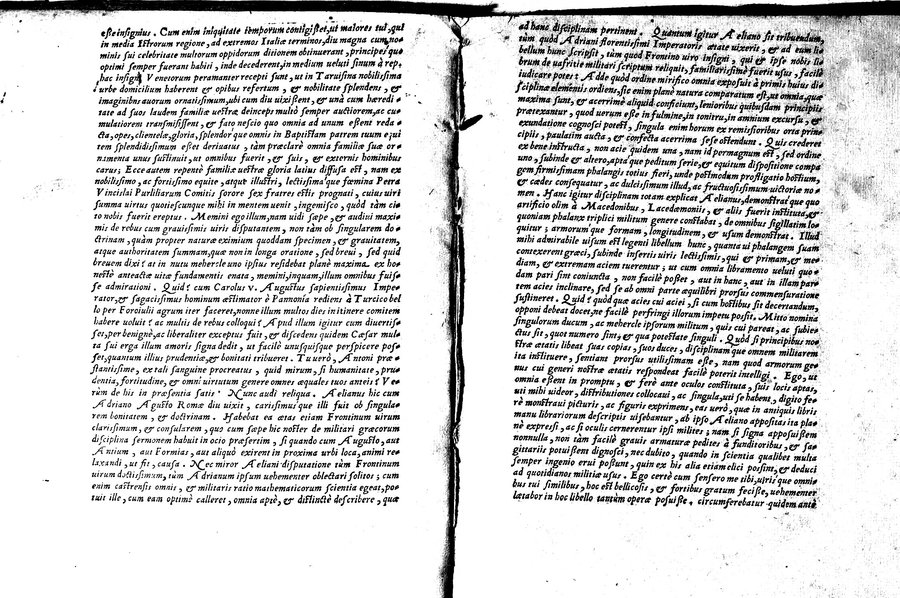 este insignius. Cum enim iniquitate temporum contigisset, ut maiores tui, qui
in media Istrorum regione, ad extremos Italiæ terminos, diu magna cum no=
minis sui celebritate multorum oppidorum ditionem obtinuerant, principes quo
optimi semper fuerant habiti, inde decederent, in medium ueluti sinum à rep.
hac insigni Venetorum peramanter recepti sunt, ut in Taruisina nobilissima
urbe domicilium haberent & opibus refertum, & nobilitate splendens, &
imaginibus auorum ornatissimum, ubi cum diu uixissent, & unà cum hæredi=
tate ad suos laudem familiæ uestræ deinceps multò semper auctiorem, ac cu=
mulatiorem transmisissent, & fato nescio quo omnia ad unum essent reda=
cta, opes, clientelæ, gloria, splendor que omnis in Baptistam patrem tuum equi
tem splendidissimum esset deriuatus, tam præclarè omnia familiæ suæ or=
namenta unus sustinuit, ut omnibus fuerit, & suis, & externis hominibus
carus; Ecce autem repentè familiæ uestræ gloria latius diffusa est, nam ex
nobilissimo, ac fortissimo equite, atque illustri, lectissima que fœmina Petra
Vincislai Purliliarum Comitis sorore sex fratres estis prognati, cuius uiri
summa uirtus quotiescunque mihi in mentem uenit, ingemisco, quòd tàm ci=
to nobis fuerit ereptus. Memini ego illum, nam uidi sæpe, & audiui maxi=
mis de rebus cum grauissimis uiris disputantem, non tàm ob singularem do=
ctrinam, quàm propter naturæ eximium quoddam specimen, & grauitatem,
atque authoritatem summam, quæ non in longa oratione, sed breui, sed quid
breuem dixi? at in nutu mehercule uno ipsius residebat planè maxima. ex ho=
nestè anteactæ uitæ fundamentis enata, memini, inquam, illum omnibus fuis=
se admirationi. Quid? cum Carolus v. Augustus sapientissimus Impe=
rator, & sagacissimus hominum æstimator è Pannonia rediens à Turcico bel
lo per Foroiulij agrum iter faceret, nonne illum multos dies in itinere comitem
habere uoluit? ac multis de rebus colloqui? Apud illum igitur cum diuertis=
set, perbenignè, ac liberaliter exceptus fuit, & discedens quidem Cæsar mul=
ta sui erga illum amoris signa dedit, ut facilè unusquisque perspicere pos=
set, quantum illius prudentiæ, & bonitati tribueret. Tu uerò, Antoni præ=
stantissime, ex tali sanguine procreatus, quid mirum, si humanitate, pru=
dentia, fortitudine, & omni uirtutum genere omnes æquales tuos anteis? Ve=
rùm de his in præsentia satis. Nunc audi reliqua. Aelianus hic cum
Adriano Augusto Romæ diu uixit, carissimus que illi fuit ob singula=
rem bonitatem, & doctrinam. Habebat ea ætas etiam Frontinum uirum
clarissimum, & consularem, quo cum sæpe hic noster de militari græcorum
disciplina sermonem habuit in ocio præsertim, si quando cum Augusto, aut
Antium, aut Formias, aut aliquò exirent in proxima urbi loca, animi re=
laxandi, ut fit, causa. Nec miror Aeliani disputatione tùm Frontinum
uirum doctissimum, tùm Adrianum ipsum uehementer oblectari solitos; cum
enim castrensis omnis, & militaris ratio mathematicorum scientia egeat, po=
tuit ille, cum eam optimè calleret, omnia aptè, & distinctè describere, quæ
ad hanc disciplinam pertinent. Quantum igitur Aeliano sit tribuendum,
tùm quòd Adriani florentissimi Imperatoris ætate uixerit, & ad eum li=
bellum hunc scripsit, tùm quòd Frontino uiro insigni, qui & ipse nobis li=
brum de uafritie militari scriptum reliquit, familiarissimè fuerit usus, facilè
iudicare potes: Adde quòd ordine mirifico omnia exposuit à primis huius di=
sciplinæ elementis ordiens, sic enim planè natura comparatum est, ut omnia, quæ
maxima sunt, & acerrimè aliquid conficiunt, lenioribus quibusdam principiis
prætexantur, quod uerum esse in fulmine, in tonitru, in amnium excursu, &
exundatione cognosci potest, singula enim horum ex remissioribus orta prin=
cipiis, paulatim aucta, & confecta acerrima sese ostendunt. Quis crederet
ex bene instructa, non acie quidem una, nam id permagnum est, sed ordine
uno, subinde & altero, apta que peditum serie, & equitum dispositione compa
gem firmissimam phalangis totius fieri, unde postmodum profligatio hostium,
& cædes consequatur, ac dulcissimum illud, ac fructuosissimum uictoriæ no=
men. Hanc igitur disciplinam totam explicat Aelianus, demonstrat que quo
artificio olim à Macedonibus, Lacedæmoniis, & aliis fuerit instituta, &
quoniam phalanx triplici militum genere constabat, de omnibus sigillatim lo=
quitur; armorum que formam, longitudinem, & usum demonstrat. Illud
mihi admirabile uisum est legenti libellum hunc, quanta ui phalangem suam
contexerent græci, subinde insertis uiris lectissimis, qui & primam, & me=
diam, & extremam aciem tuerentur; ut cum omnia libramento ueluti quo=
dam pari sint coniuncta, non facilè posset, aut in hanc, aut in illam par=
tem acies inclinare, sed se ab omni parte æquilibri prorsus commensuratione
sustineret. Quid? quòd quæ acies cui aciei, si cum hostibus sit decertandum,
opponi debeat docet, ne facilè perfringi illorum impetu possit. Mitto nomina
singulorum ducum, ac mehercle ipsorum militum, quis cui pareat, ac subie=
ctus sit, quot numero sint, & qua potestate singuli. Quòd si principibus no=
stræ ætatis libeat suas copias, suos duces, disciplinam que omnem militarem
ita instituere, sentiant prorsus utilissimam esse, nam quod armorum ge=
nus cui generi nostræ ætatis respondeat facilè poterit intelligi. Ego, ut
omnia essent in promptu, & ferè ante oculos constituta, suis locis aptas,
uti mihi uideor, distributiones collocaui, ac singula, uti se habent, digito fe=
rè monstraui picturis, ac figuris exprimens, eas uerò, quæ in antiquis libris
manu librariorum descriptis uisebantur, ab ipso Aeliano appositas ita pla=
nè expressi, ac si oculis cernerentur ipsi milites; nam si signa apposuissem
nonnulla, non tàm facilè grauis armaturæ pedites à funditoribus, & sa=
gittariis potuissent dignosci, nec dubito, quando in scientia qualibet multa
semper ingenio erui possunt, quin ex his alia etiam elici possint, & deduci
ad quotidianos militiæ usus. Ego certè cum senserο me tibi, uiris que omni=
bus tui similibus, hoc est bellicosis, & fortibus gratum fecisse, uehementer
lætabor in hoc libello tantùm operæ posuisse. circumferebatur quidem antè